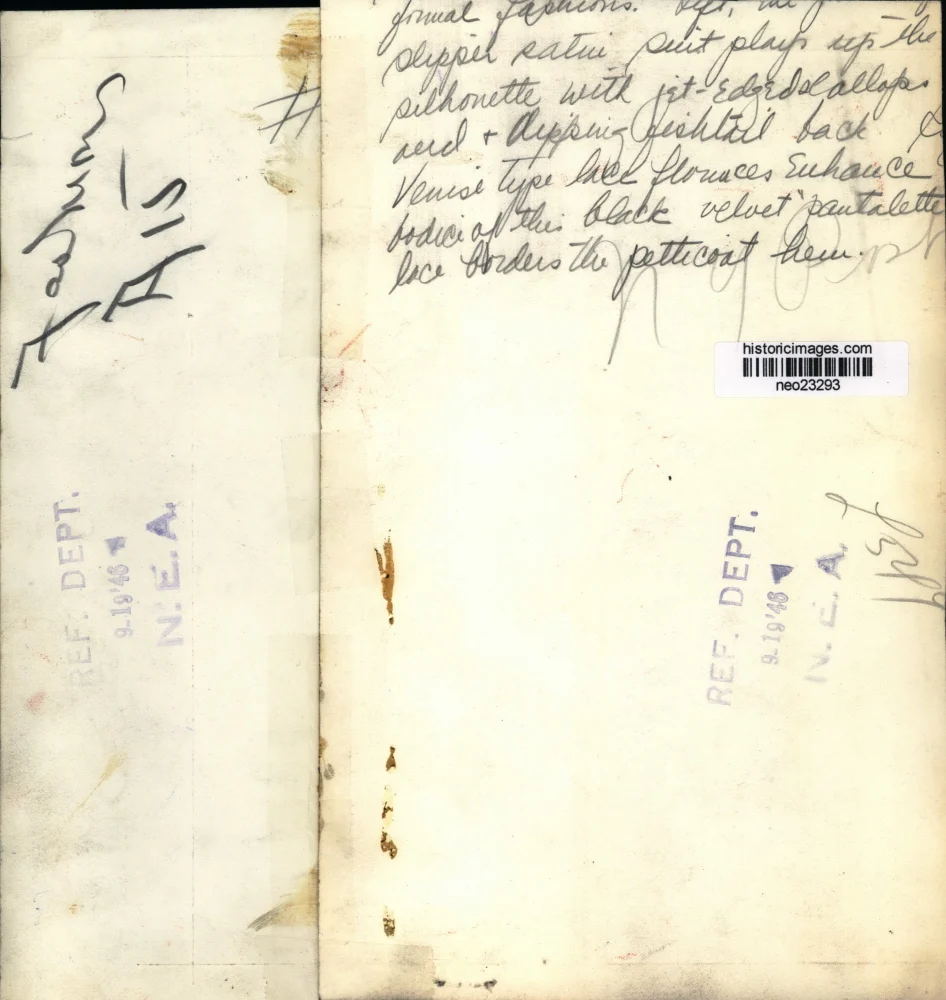 formal fashions. Left, the
slipper satin suit plays up the
silhouette with jet-edged scallops
and + dipping fishtail back
Venise type lace flounces Enhance
bodice of this black velvet "pantalette
lace borders the petticoat hem.
historicimages.com
neo23293
Fashions
A 15
#
REF. DEPT.
9-19'46
N. E. A.
REF. DEPT.
9-19'46
N. E. A.